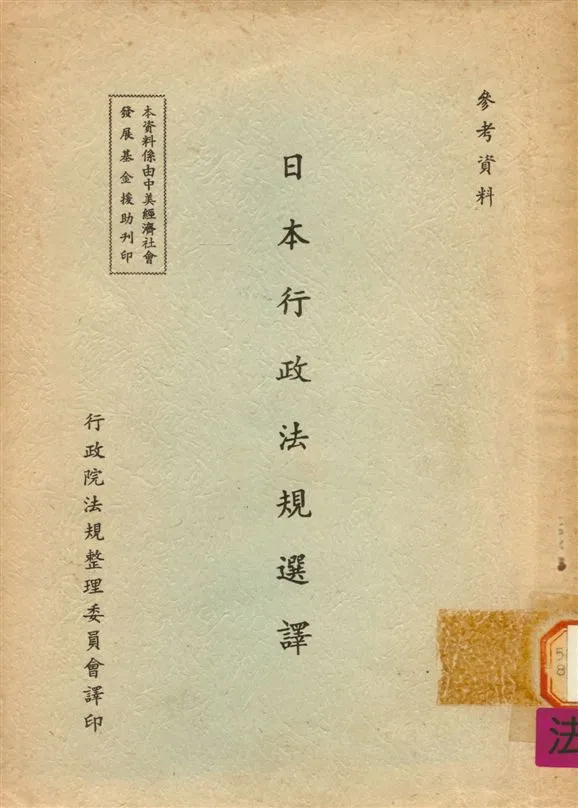 參考資料
日本行政法規選譯
本資料係由中美經濟社會
發展基金援助刊印
行政院法規整理委員會譯印
5
8
法